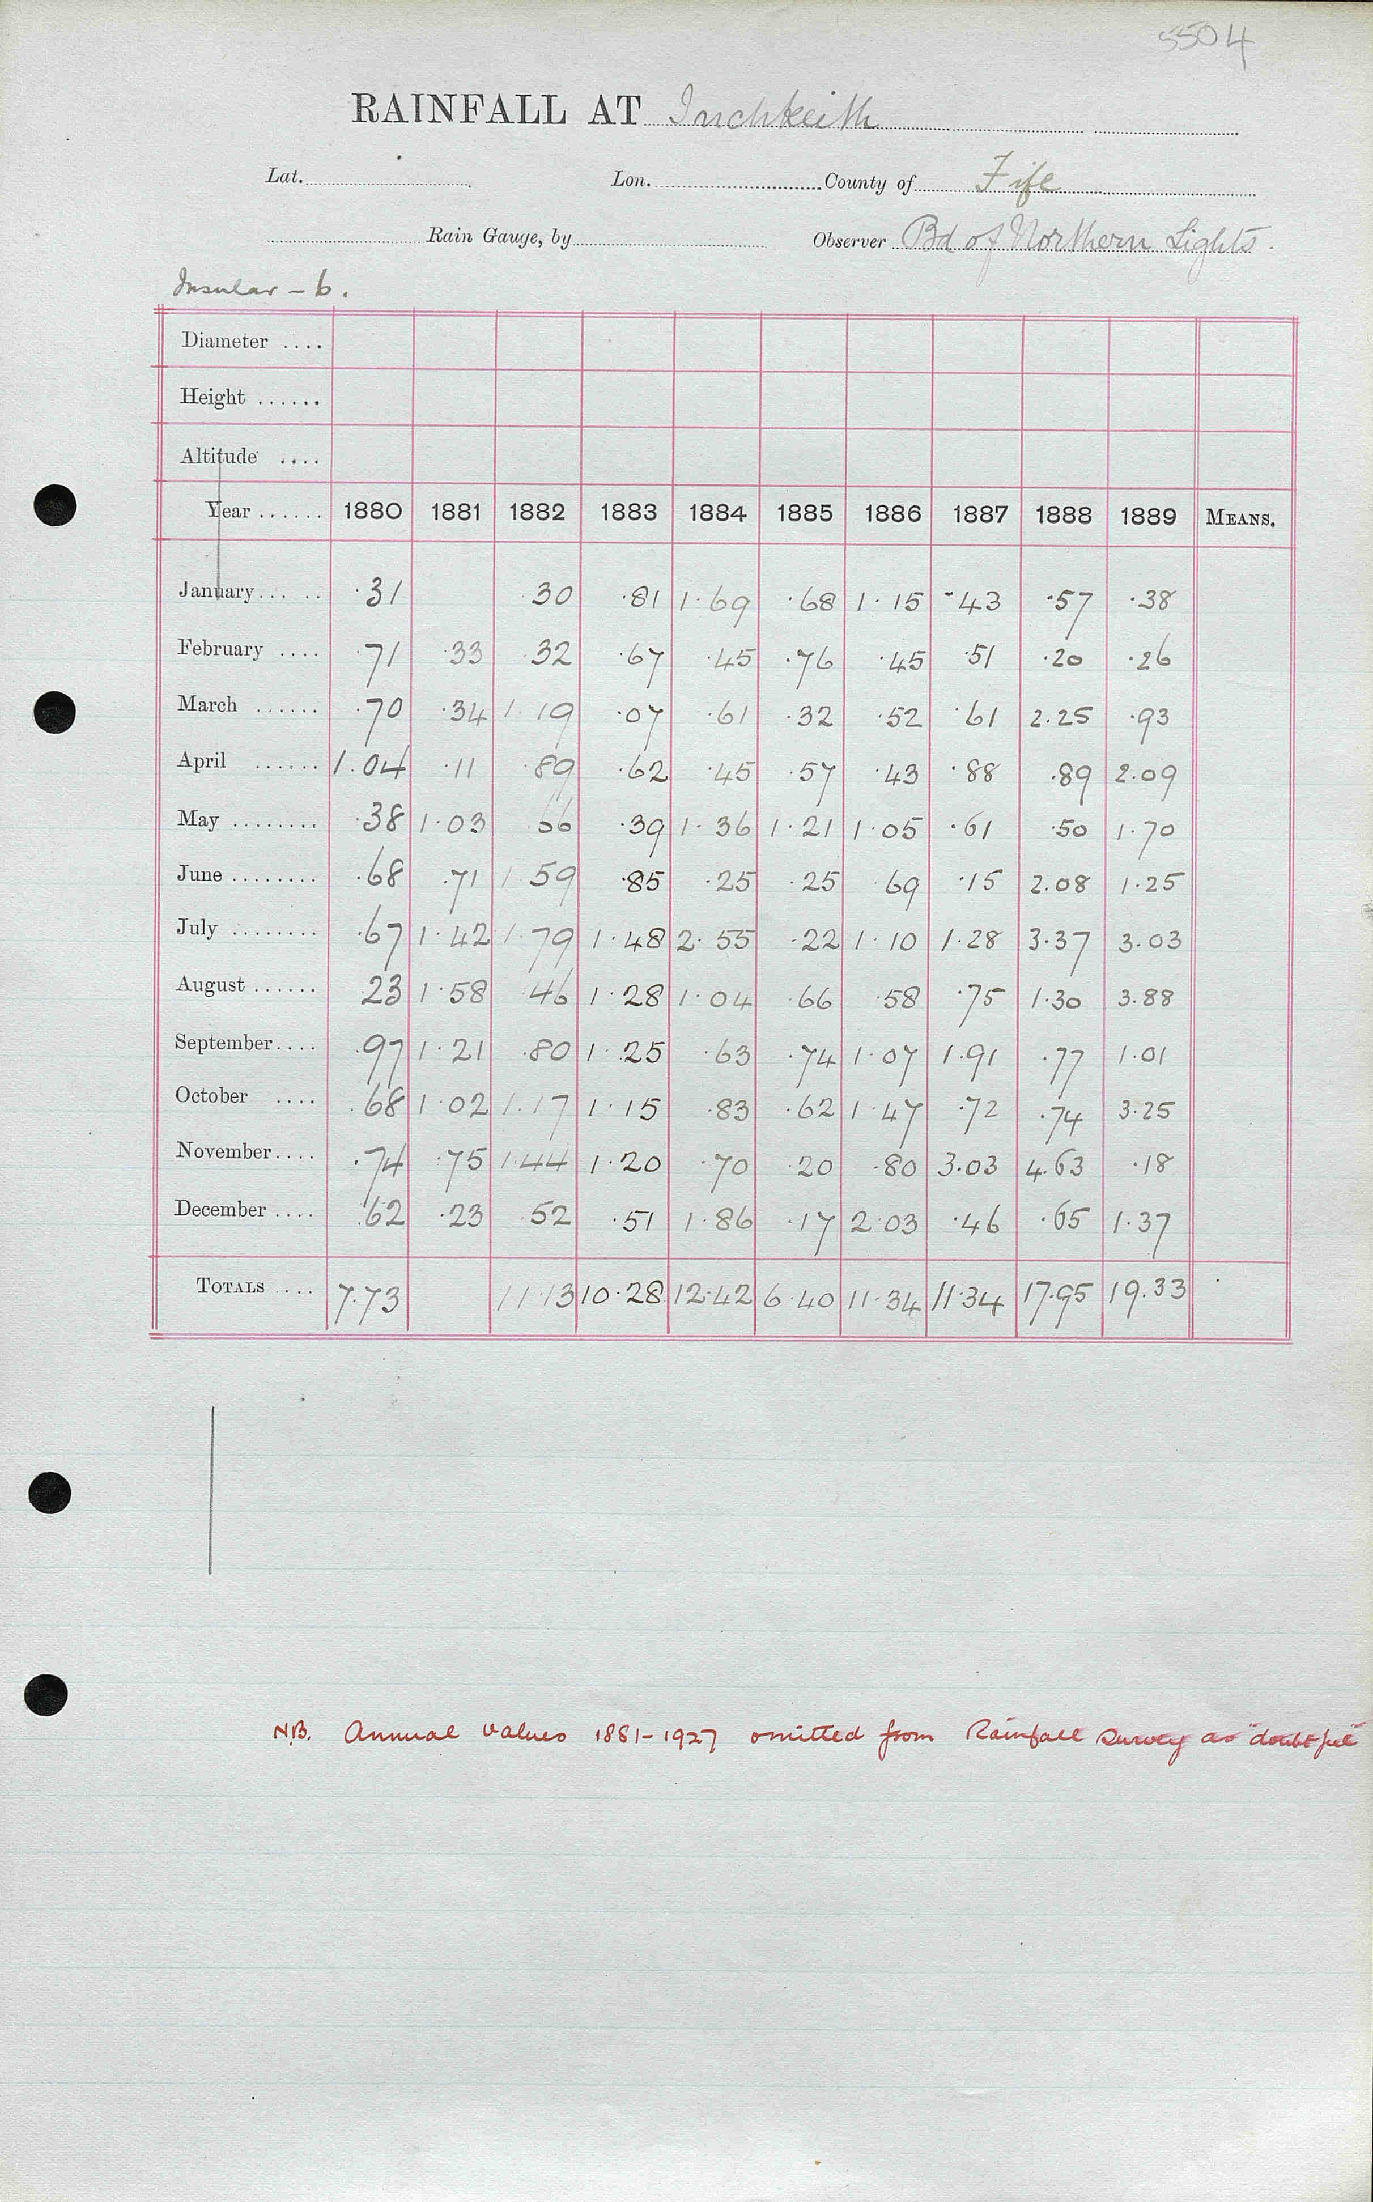 5504
RAINFALL AT Inchkeith
Lat. Lon. County of Fife
Rain Gauge, by Observer Bd of Northern Lights.
Insular - b.
Diameter ....
Height ......
Altitude ....
Year ...... 1880 1881 1882 1883 1884 1885 1886 1887 1888 1889 MEANS.
January ... .. ·31 ·30 ·81 1·69 ·68 1·15 ·43 ·57 ·38
February .... ·71 ·33 ·32 ·67 ·45 ·76 ·45 ·51 ·20 ·26
March ...... ·70 ·34 1·19 ·07 ·61 ·32 ·52 ·61 2.25 ·93
April ...... 1.04 ·11 ·89 ·62 ·45 ·57 ·43 ·88 ·89 2.09
May ........ ·38 1·03 66 ·39 1·36 1·21 1·05 ·61 ·50 1·70
June ........ ·68 ·71 1·59 ·85 ·25 ·25 ·69 ·15 2.08 1·25
July ........ ·67 1·42 1·79 1·48 2·55 ·22 1·10 1·28 3·37 3·03
August ...... 23 1·58 ·46 1·28 1·04 ·66 ·58 ·75 1·30 3·88
September.... ·97 1·21 ·80 1·25 ·63 ·74 1·07 1·91 ·77 1·01
October .... ·68 1·02 1·17 1·15 ·83 ·62 1·47 ·72 ·74 3·25
November.... ·74 ·75 1·44 1·20 ·70 ·20 ·80 3·03 4·63 ·18
December .... ·62 ·23 ·52 ·51 1·86 ·17 2·03 ·46 ·65 1·37
TOTALS .... 7.73 11·13 10·28 12·42 6·40 11·34 11·34 17.95 19.33
N.B. Annual values 1881-1927 omitted from Rainfall Survey as "doubtful"